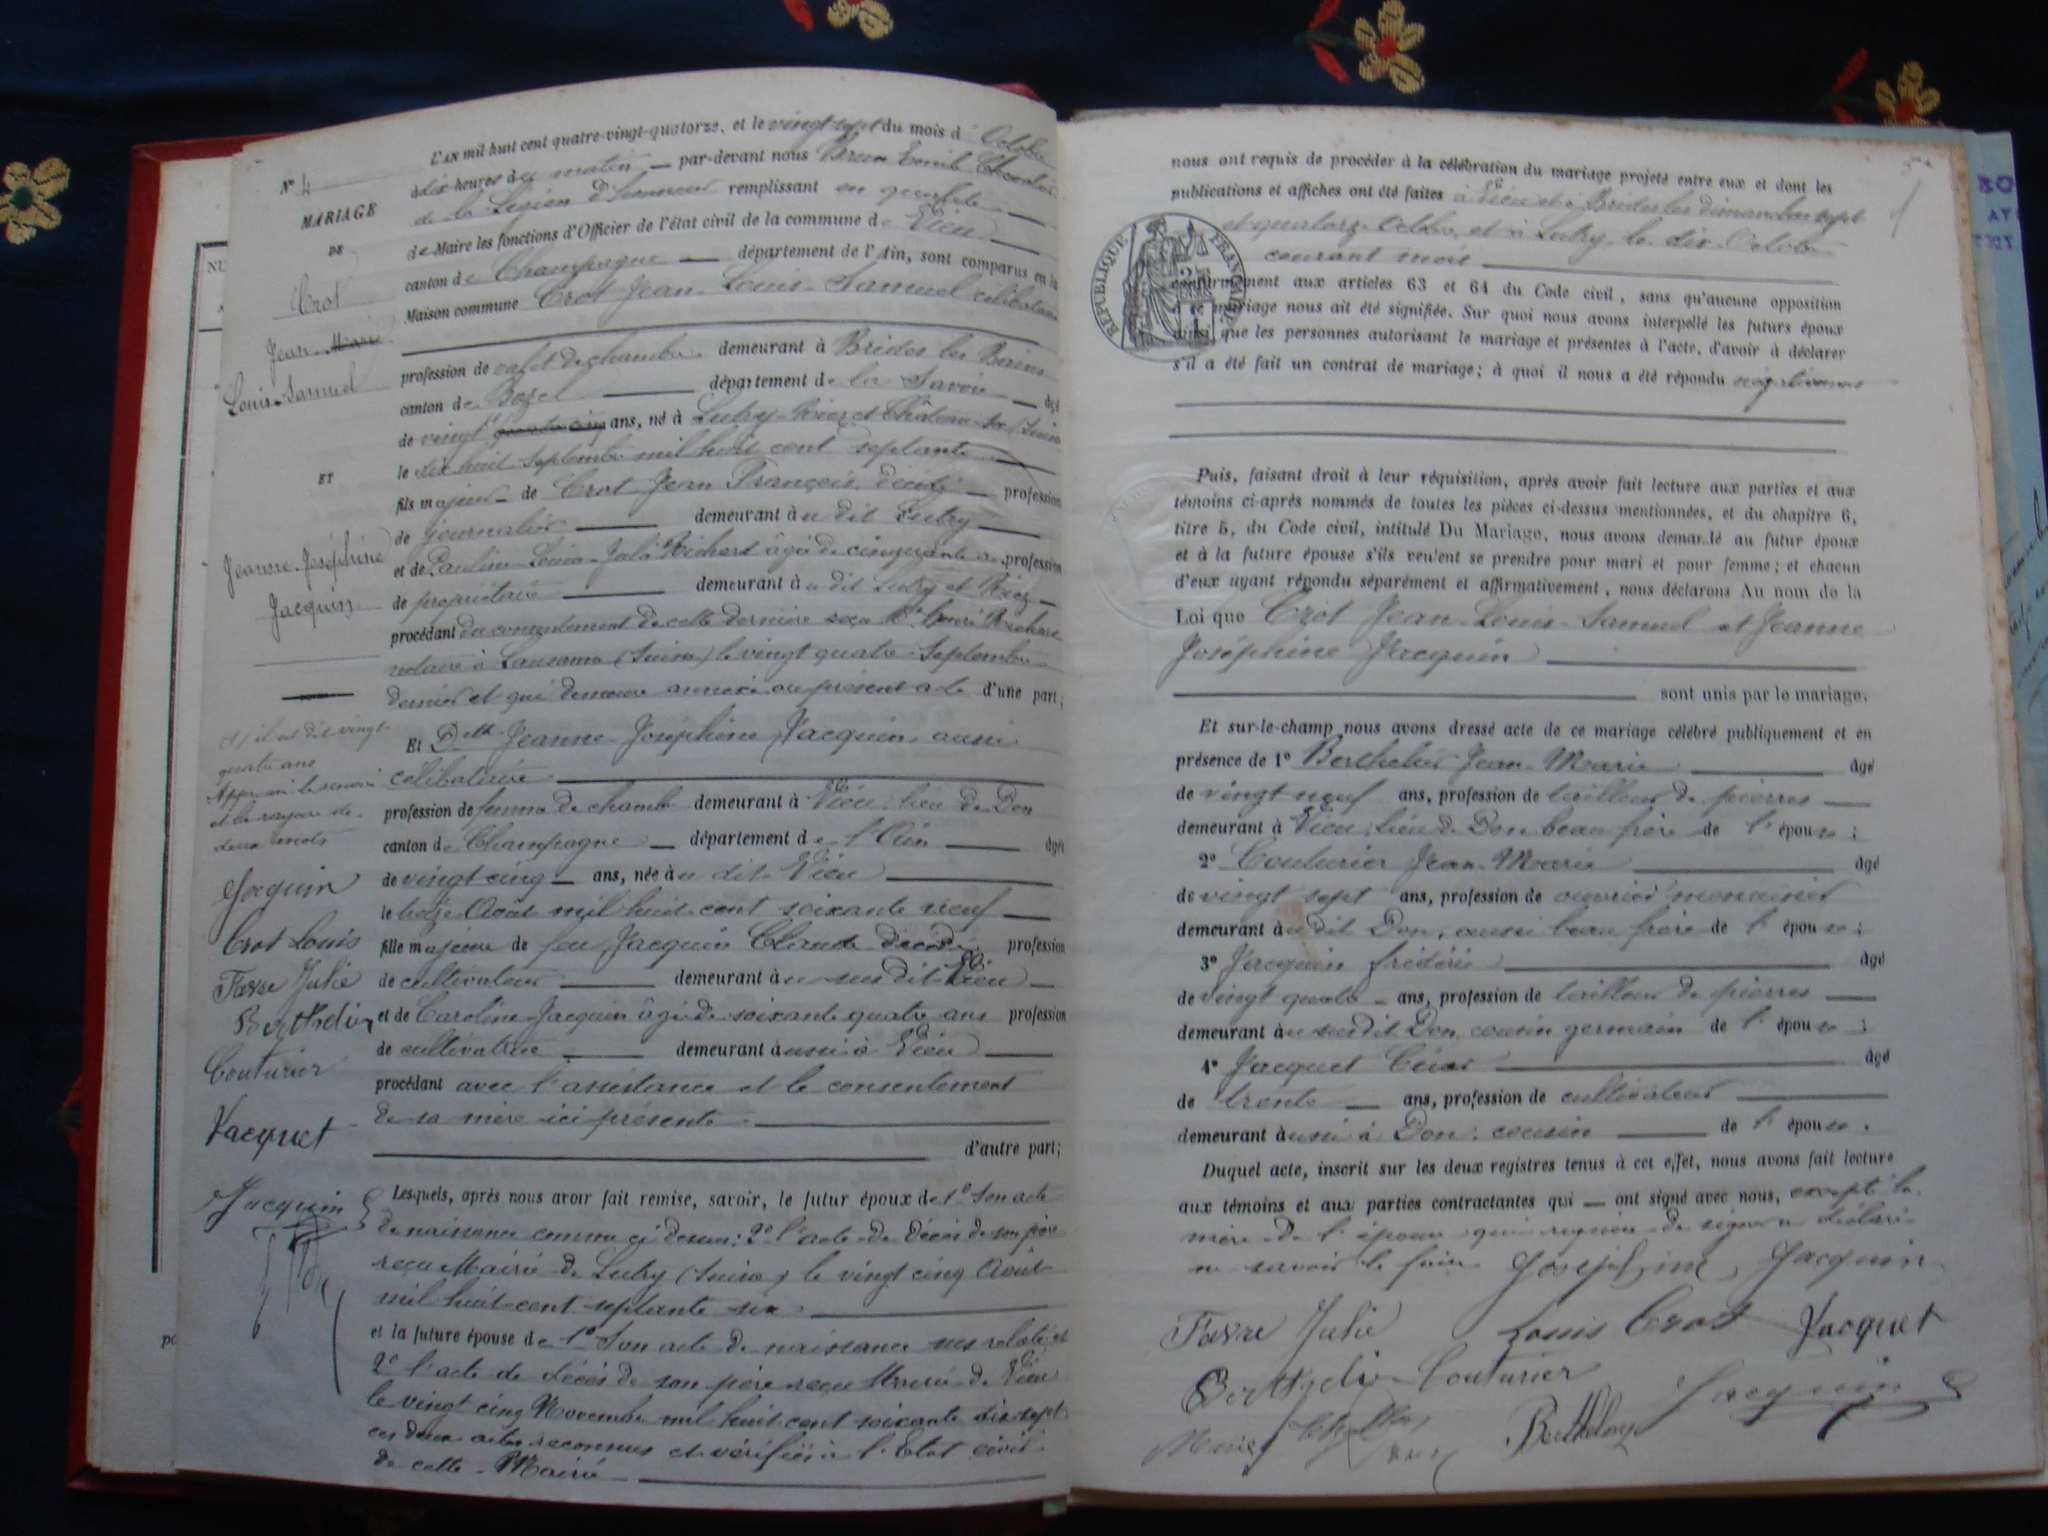 L'AN mil huit cent quatre-vingt-quatorze, et le vingt sept du mois d' Octobre
à dix heures du matin par-devant nous Emile Chevalier
de la Légion d'honneur remplissant en qualité
de Maire les fonctions d'Officier de l'état civil de la commune de Vieu
canton de Champagne département de l'Ain, sont comparus en la
Maison commune Crot Jean-Louis-Samuel célibataire
profession de valet de chambre demeurant à Brides les Bains
canton de Bozel département de la Savoie âgé
de vingt ans, né à Lutry
le dix huit Septembre mil huit cent septante
fils majeur de Crot Jean François, décédé profession
de journalier demeurant à u dit Lutry
et de Pauline Louise Julie Richard âgée de cinquante profession
de propriétaire demeurant à u dit Lutry
procédant du consentement de cette dernière reçu Me Henri
notaire à Lausanne (Suisse) le vingt quatre Septembre
dernier et qui demeure annexé au présent acte d'une part;
Et Delle Jeanne-Joséphine Jacquin, aussi
célibataire
profession de femme de chambre demeurant à Vieu, lieu de Don
canton de Champagne département de l'Ain âgée
de vingt cinq ans, née à u dit Vieu
le treize Août mil huit cent soixante neuf
fille majeure de feu Jacquin Claude décédé profession
de cultivateur demeurant à u sus dit Vieu
et de Caroline Jacquin âgée de soixante quatre ans profession
de cultivatrice demeurant à ussi à Vieu
procédant avec l'assistance et le consentement
de sa mère ici présente
d'autre part;
Lesquels, après nous avoir fait remise, savoir, le futur époux de 1° Son acte
de naissance comme ci dessus; 2° l'acte de décès de son père
reçu Mairie de Lutry (Suisse) le vingt cinq Août
mil huit cent septante six
et la future épouse de 1° Son acte de naissance sus relaté et
2° l'acte de décès de son père reçu Mairie de Vieu
le vingt cinq Novembre mil huit cent soixante dix sept
ces deux actes reconnus et vérifiés à l'Etat civil
de cette Mairie
N° 4
MARIAGE
DE
Crot
Jean-Marie
Louis-Samuel
ET
Jeanne-Joséphine
Jacquin
il est dit vingt
quatre ans
Approuvé le renvoi
et la rayure de
deux mots
Jacquin
Crot Louis
Favre Julie
Berthelier
Couturier
Jacquet
Jacquin
nous ont requis de procéder à la célébration du mariage projeté entre eux et dont les
publications et affiches ont été faites à Vieu et à Brides les dimanches sept
et quatorze Octobre, et à Lutry le dix Octobre
courant mois
RÉPUBLIQUE FRANÇAISE
conformément aux articles 63 et 64 du Code civil, sans qu'aucune opposition
à ce mariage nous ait été signifiée. Sur quoi nous avons interpellé les futurs époux
ainsi que les personnes autorisant le mariage et présentes à l'acte, d'avoir à déclarer
s'il a été fait un contrat de mariage; à quoi il nous a été répondu négativement
Puis, faisant droit à leur réquisition, après avoir fait lecture aux parties et aux
témoins ci-après nommés de toutes les pièces ci-dessus mentionnées, et du chapitre 6,
titre 5, du Code civil, intitulé Du Mariage, nous avons demandé au futur époux
et à la future épouse s'ils veulent se prendre pour mari et pour femme; et chacun
d'eux ayant répondu séparément et affirmativement, nous déclarons Au nom de la
Loi que Crot Jean-Louis-Samuel et Jeanne
Joséphine Jacquin
sont unis par le mariage.
Et sur-le-champ nous avons dressé acte de ce mariage célébré publiquement et en
présence de 1° Berthelier Jean-Marie âgé
de vingt neuf ans, profession de tailleur de pierres
demeurant à Vieu, lieu de Don beau frère de l'épouse;
2° Couturier Jean-Marie âgé
de vingt sept ans, profession de ouvrier menuisier
demeurant à u dit Don, aussi beau frère de l'épouse;
3° Jacquin frédéric âgé
de vingt quatre ans, profession de tailleur de pierres
demeurant à u susdit Don cousin germain de l'épouse;
4° Jacquet César âgé
de trente ans, profession de cultivateur
demeurant à ussi à Don, cousin de l'épouse.
Duquel acte, inscrit sur les deux registres tenus à cet effet, nous avons fait lecture
aux témoins et aux parties contractantes qui ont signé avec nous, excepté la
mère de l'épouse qui requise de signer a déclaré
ne savoir le faire. Joséphine Jacquin
Favre Julie Louis Crot Jacquet
Berthelier Couturier Jacquin